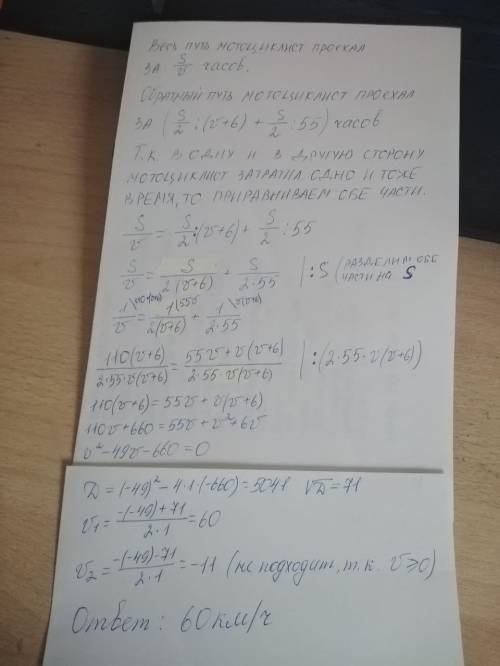 Весь путь мотоциклист проехал
за S/v часов.
Обратный путь мотоциклист проехал
за (S/2 : (v+6) + S/2 : 55) часов
Т.к. в одну и в другую сторону
мотоциклист затратил одно и тоже
время, то приравниваем обе части.
S/v = S/2 : (v+6) + S/2 : 55
S/v = S/2(v+6) + S/2·55 | :S (разделим обе части на S
1/v = 1/2(v+6) + 1/2·55
110(v+6)/2·55·v(v+6) = 55v+v(v+6)/2·55·v(v+6) | :(2·55·v(v+6))
110(v+6)=55v+v(v+6)
110v+660=55v+v²+6v
v²-49v-660=0
D=(-49)²-4·1·(-660)=5041 √D=71
v₁=-(-49)+71/2·1=60
v₂=-(-49)-71/2·1=-11 (не подходит, т.к. v⩾0)
Ответ: 60км/ч